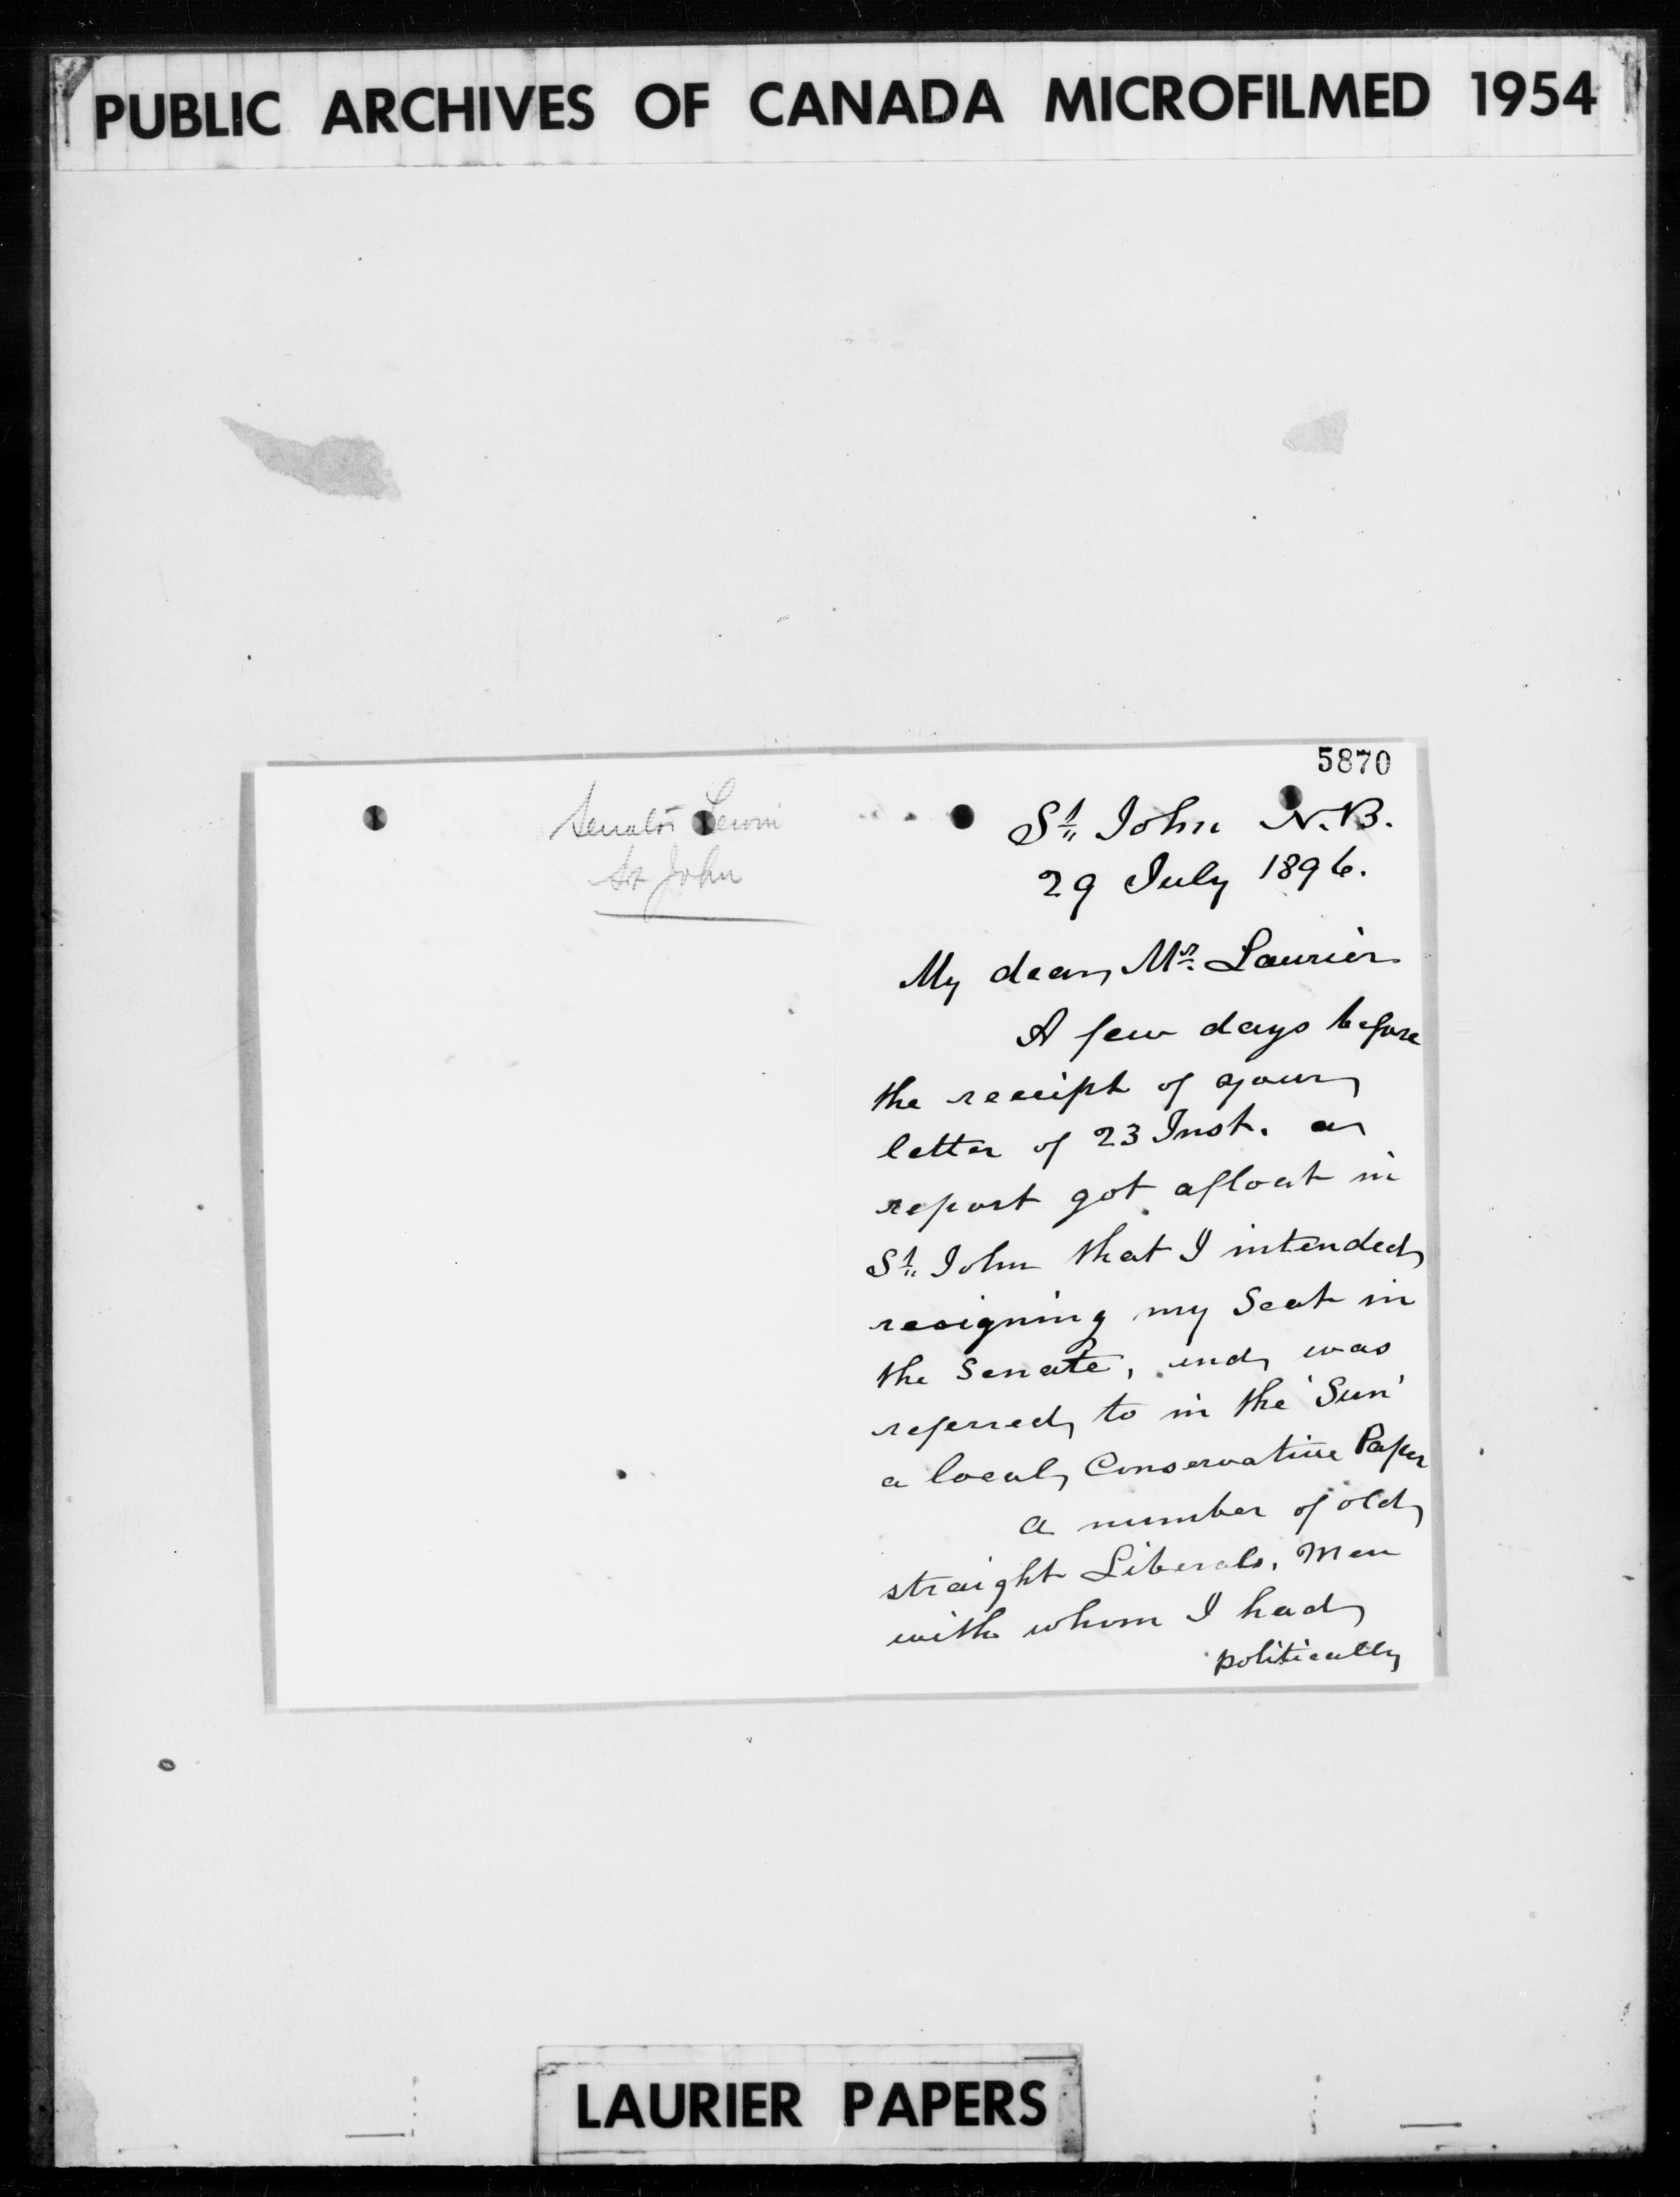 PUBLIC ARCHIVES OF CANADA MICROFILMED 1954
Senator Lewin
St John
5870
St. John N.B.
29 July 1896.
My dear Mr. Laurier
A few days before
the receipt of your
letter of 23 Inst. a
report got afloat in
St. John that I intended
resigning my Seat in
the Senate, and was
referred to in the 'Sun'
a local Conservative Paper
A number of old
straight Liberals, Men
with whom I had
politically
LAURIER PAPERS